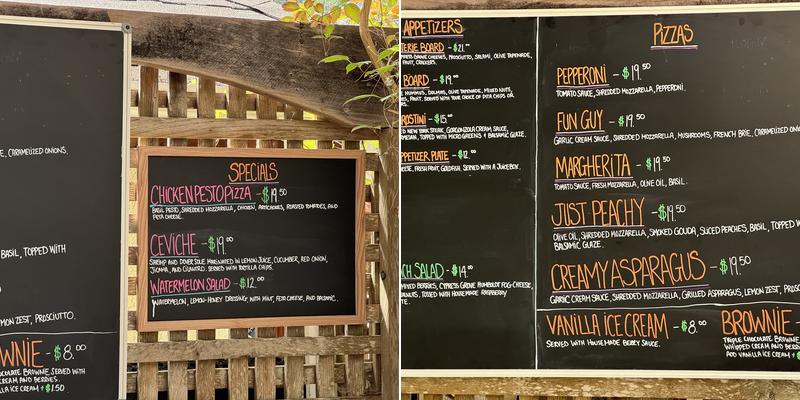 E, CARAMELIZED ONIONS,
BASIL, TOPPED WITH
MON ZEST, PROSCIUTTO.
WNIE - $8.00
OCOLATE BROWNIE SERVED WITH
CREAM AND BERRIES.
LLA ICE CREAM + $1.50
SPECIALS
CHICKEN PESTO PIZZA - $19.50
BASIL PESTO, SHREDDED MOZZARELLA, CHICKEN, ARTICHOKES, ROASTED TOMATOES, AND
FETA CHEESE.
CEVICHE - $19.00
SHRIMP AND DOVER SOLE MARINATED IN LEMON JUICE, CUCUMBER, RED ONION,
JICAMA, AND CILANTRO. SERVED WITH TORTILLA CHIPS.
WATERMELON SALAD - $12.00
WATERMELON, LEMON-HONEY DRESSING, WITH MINT, FETA CHEESE, AND BALSAMIC.
APPETIZERS
TERIE BOARD - $21.00
PRESS GROVE CHEESES, PROSCIUTTO, SALAMI, OLIVE TAPENADE,
FRUIT, CRACKERS.
BOARD - $19.00
HUMMUS, DOLMAS, OLIVE TAPENADE, MIXED NUTS,
FRUIT. SERVED WITH YOUR CHOICE OF PITA CHIPS OR
ROSTINI - $15.00
D NEW YORK STEAK, GORGONZOLA CREAM SAUCE,
MESAN, TOPPED WITH MICRO GREENS & BALSAMIC GLAZE.
PPETIZER PLATE - $12.00
EESE, FRESH FRUIT, GOLDFISH. SERVED WITH A JUICEBOX.
CH SALAD - $14.00
MIXED BERRIES, CYPRESS GROVE HUMBOLDT FOG CHEESE,
NUTS, TOSSED WITH HOUSEMADE RASPBERRY
TE.
PIZZAS
PEPPERONI - $19.50
TOMATO SAUCE, SHREDDED MOZZARELLA, PEPPERONI.
FUN GUY - $19.50
GARLIC CREAM SAUCE, SHREDDED MOZZARELLA, MUSHROOMS, FRENCH BRIE, CARAMELIZED ONIO
MARGHERITA - $19.50
TOMATO SAUCE, FRESH MOZZARELLA, OLIVE OIL, BASIL.
JUST PEACHY - $19.50
OLIVE OIL, SHREDDED MOZZARELLA, SMOKED GOUDA, SLICED PEACHES, BASIL, TOPPED W
BALSAMIC GLAZE.
CREAMY ASPARAGUS - $19.50
GARLIC CREAM SAUCE, SHREDDED MOZZARELLA, GRILLED ASPARAGUS, LEMON ZEST, PROSC
VANILLA ICE CREAM - $8.00
SERVED WITH HOUSEMADE BERRY SAUCE.
BROWNIE -
TRIPLE CHOCOLATE BROWNIE SERVED
WHIPPED CREAM AND BERRIES
ADD VANILLA ICE CREAM +